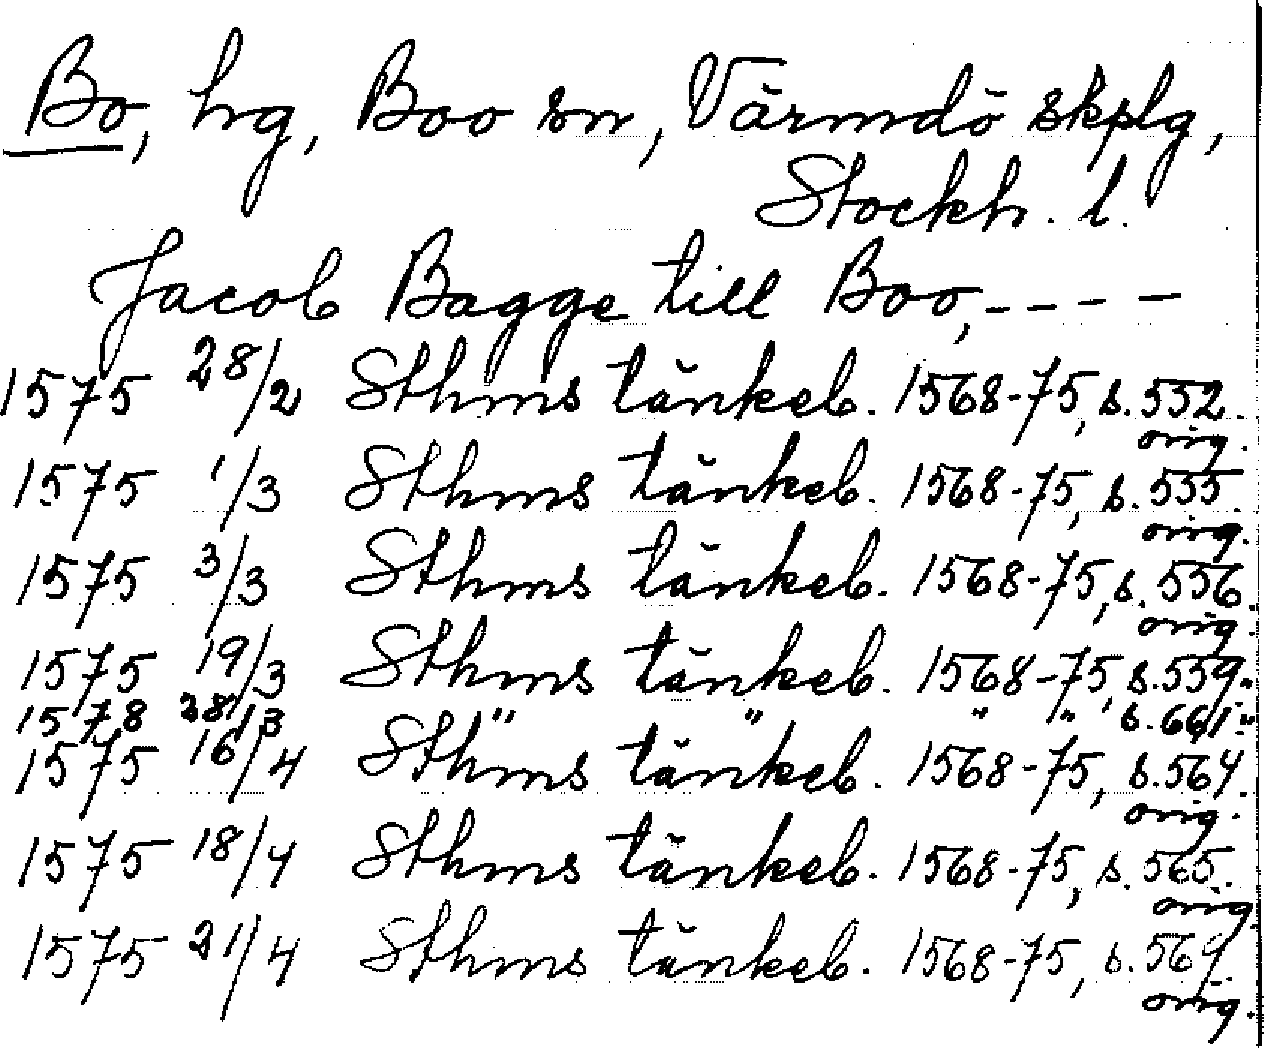 Bo, hg, Boo sn, Värmdö skplg,
Stockh. l.
Jacob Bagge till Boo, - - - -
1575 28/2 Sthms tänkeb. 1568-75, s. 552.
orig.
1575 1/3 Sthms tänkeb. 1568-75, s. 555.
orig.
1575 3/3 Sthms tänkeb. 1568-75, s. 556.
orig.
1575 19/3 Sthms tänkeb. 1568-75, s. 559."
1578 28/3 " " " " s. 661."
1575 16/4 Sthms tänkeb. 1568-75, s. 564.
orig.
1575 18/4 Sthms tänkeb. 1568-75, s. 565.
orig.
1575 21/4 Sthms tänkeb. 1568-75, s. 569.
orig.